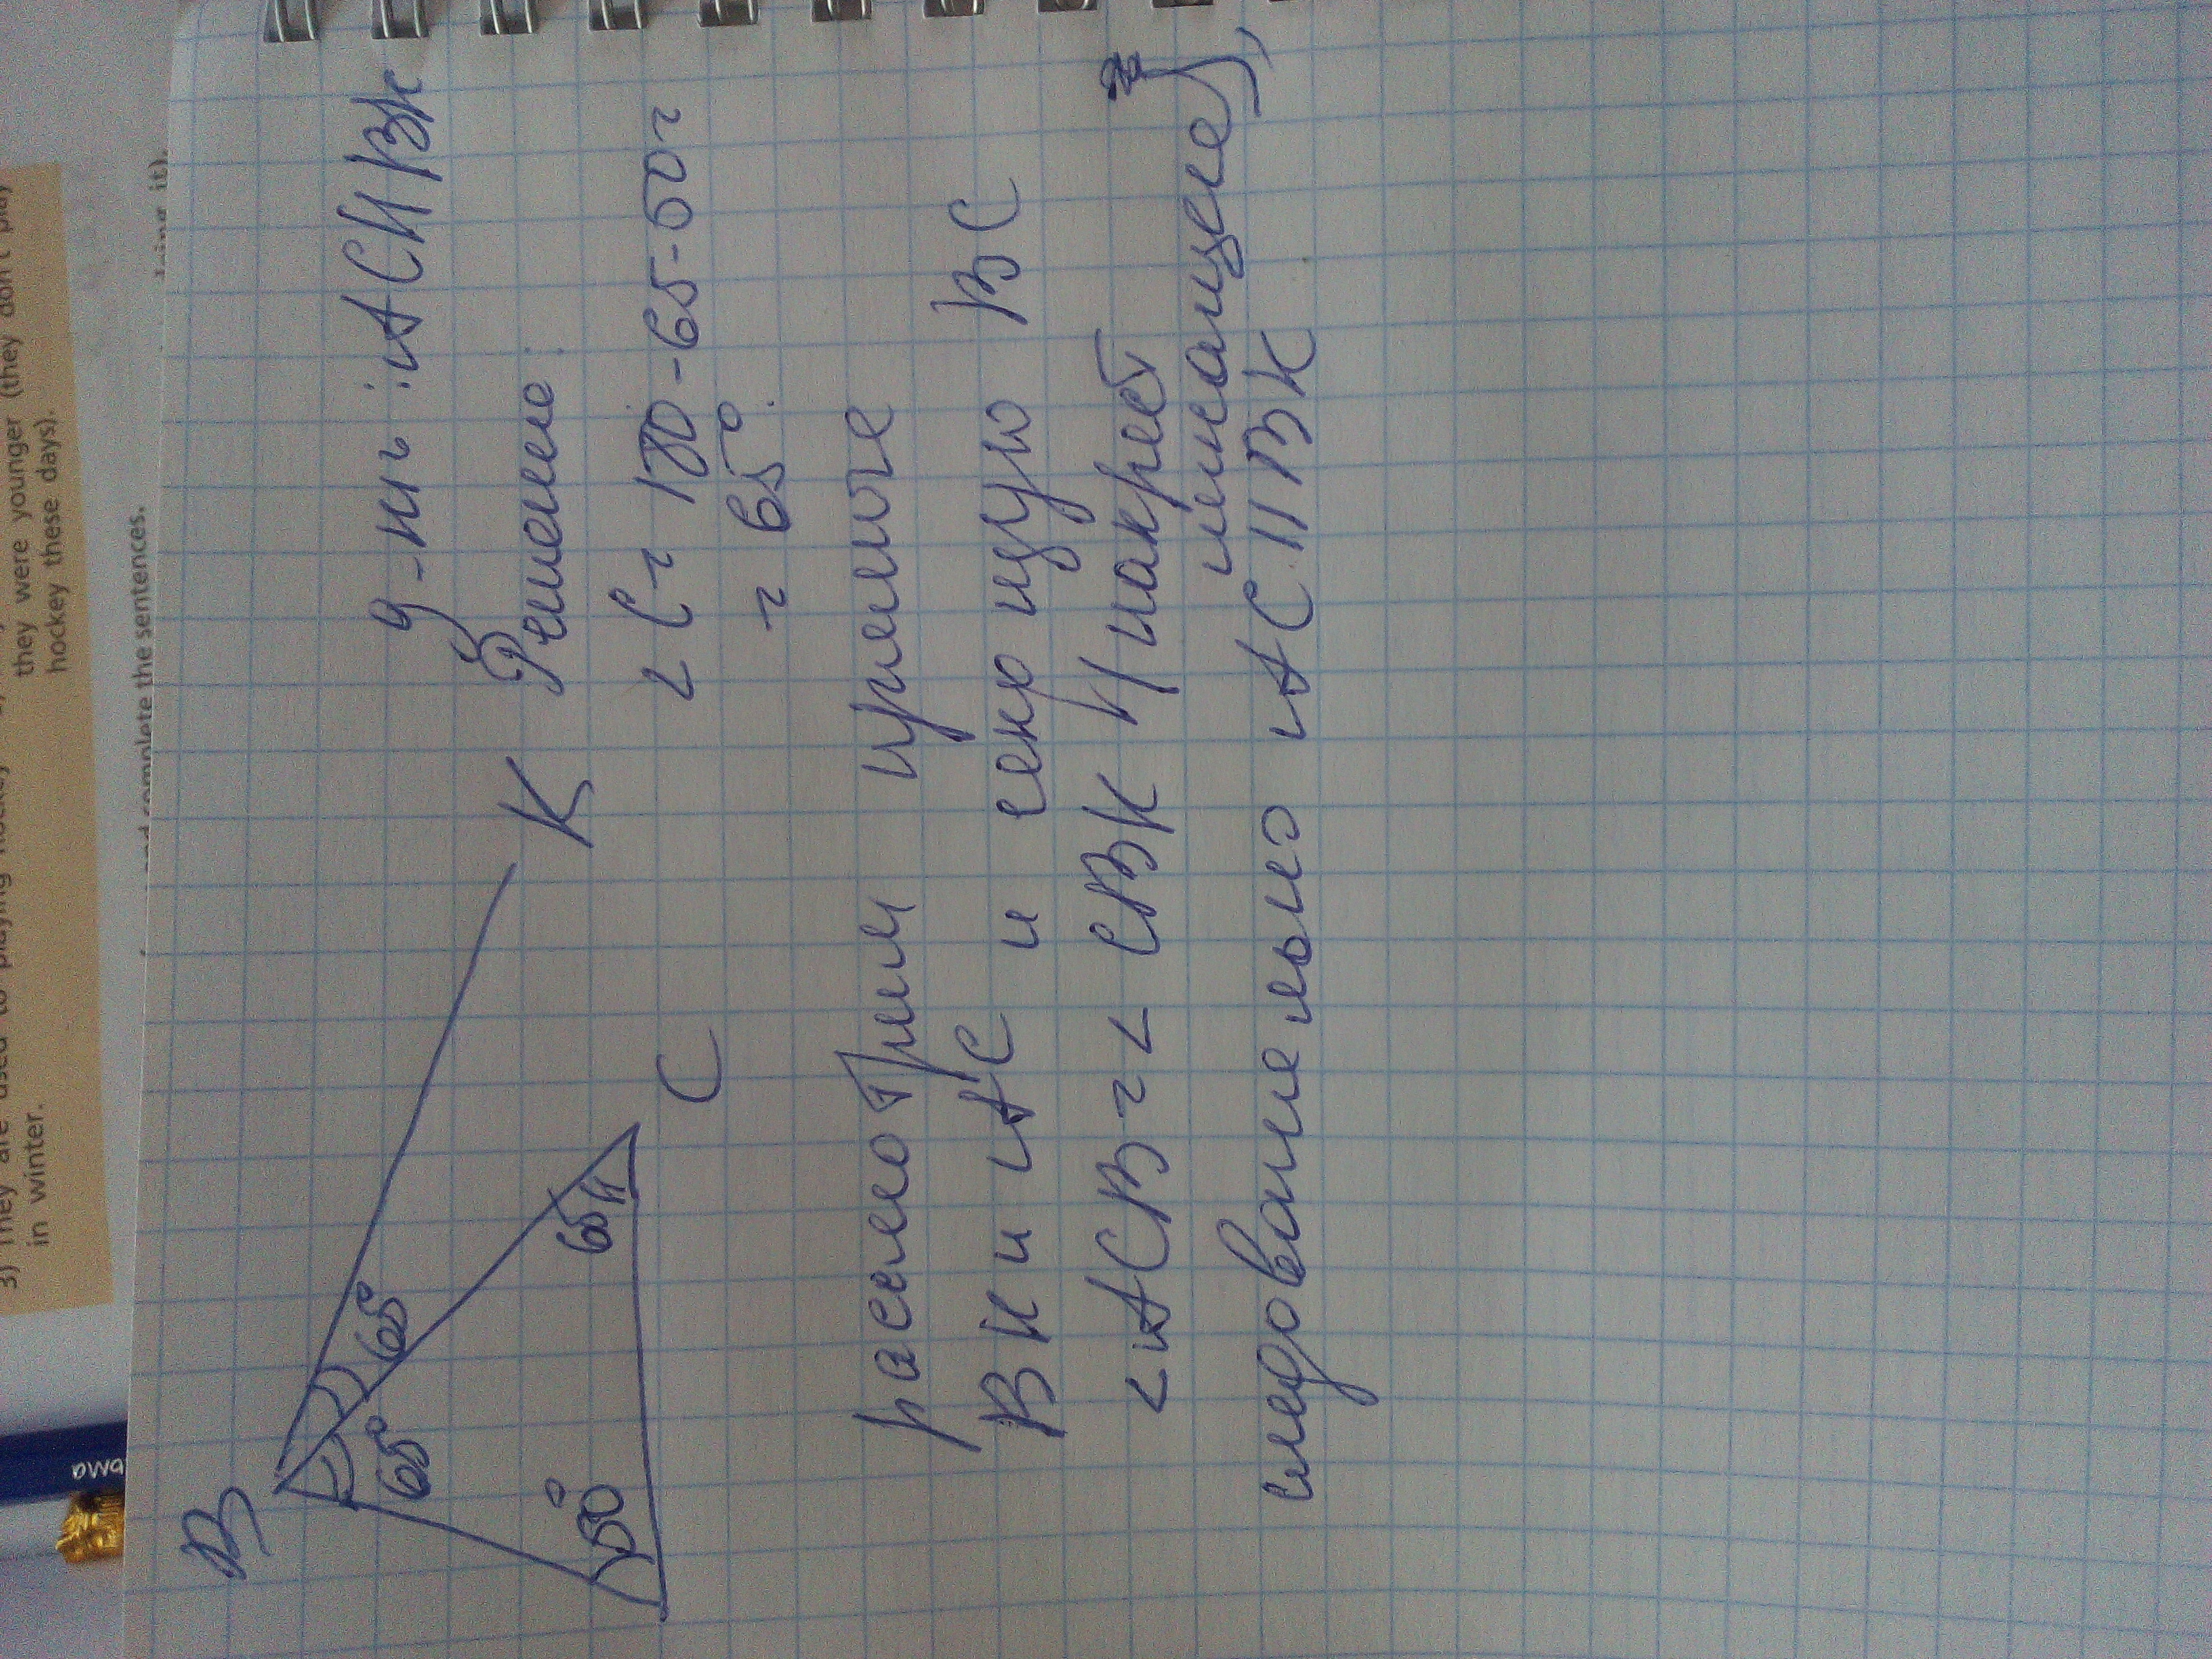 3) They are used to playing hockey
in winter.
they were younger (they don't play
hockey these days).
and complete the sentences.
it).
В
К
С
65°
65°
65
50°
Д-ть: АС||ВК
Решение:
∠С = 180-65-50=
= 65°.
расмотрим прямые
ВК и АС и секущую ВС
∠АСВ = ∠СВК (накрест
лежащие),
следовательно АС||ВК